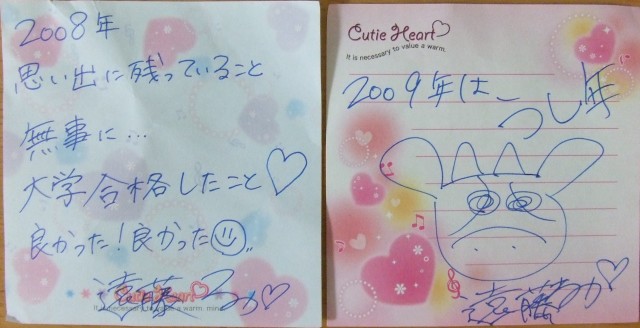 2008年
思い出に残っていること
無事に…
大学合格したこと♡
良かった！良かった
遠藤
Cutie Heart
It is necessary to value a warm.
2009年は うし年
遠藤